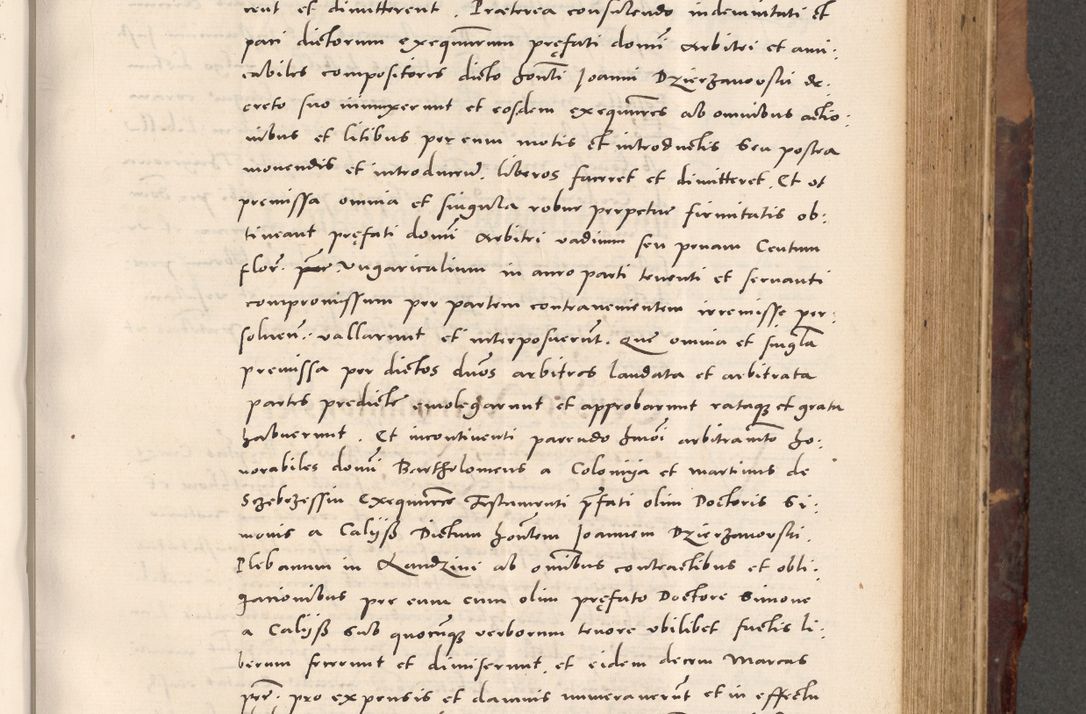 rent et dimitterent. Præterea consulendo indemnitati et
paci dictorum exequutorum pręfati domī Arbitri et ami:
cabiles compositores dicto honti Joanni Dzierzanovsky de:
creto suo iniunxerunt et eosdem exequutores ab omnibus actio:
nibus et litibus per eum motis et introductis seu postea
monendis et introducen. liberos faceret et dimitteret. Et ut
premissa omnia et singula robur perpetue firmitatis ob:
tineant pręfati domī Arbitri vadium seu penam Centum
flor. Vngaricalium in auro parti tenenti et servanti
compromissum per partem contravenientem irremisse per:
soluen. vallarunt et interposuerūt. Que omnia et singla
premissa per dictos duos arbitros laudata et arbitrata
partes predicte emolegarunt et approbarunt rataq et grata
habuerunt. Et incontinenti parendo hmōi arbitramēto ho:
norabiles domī Bartholomeus a Colonija et Martinus de
Sczebrzessin Exequutores Testamenti pfati olim Doctoris Si:
monis a Calijß Dictum hontem Joannem Dzierzanovsky.
Plebanum in Randzini ab omībus contractibus et obli:
gationibus per eum cum olim pręfato Doctore Simone
a Calijß sub quocumq verborum tenore vbilibet factis li:
berum fecerunt et dimiserunt, et eidem decem Marcas
pecc. pro expensis et damnis numeraverūt et in effectu